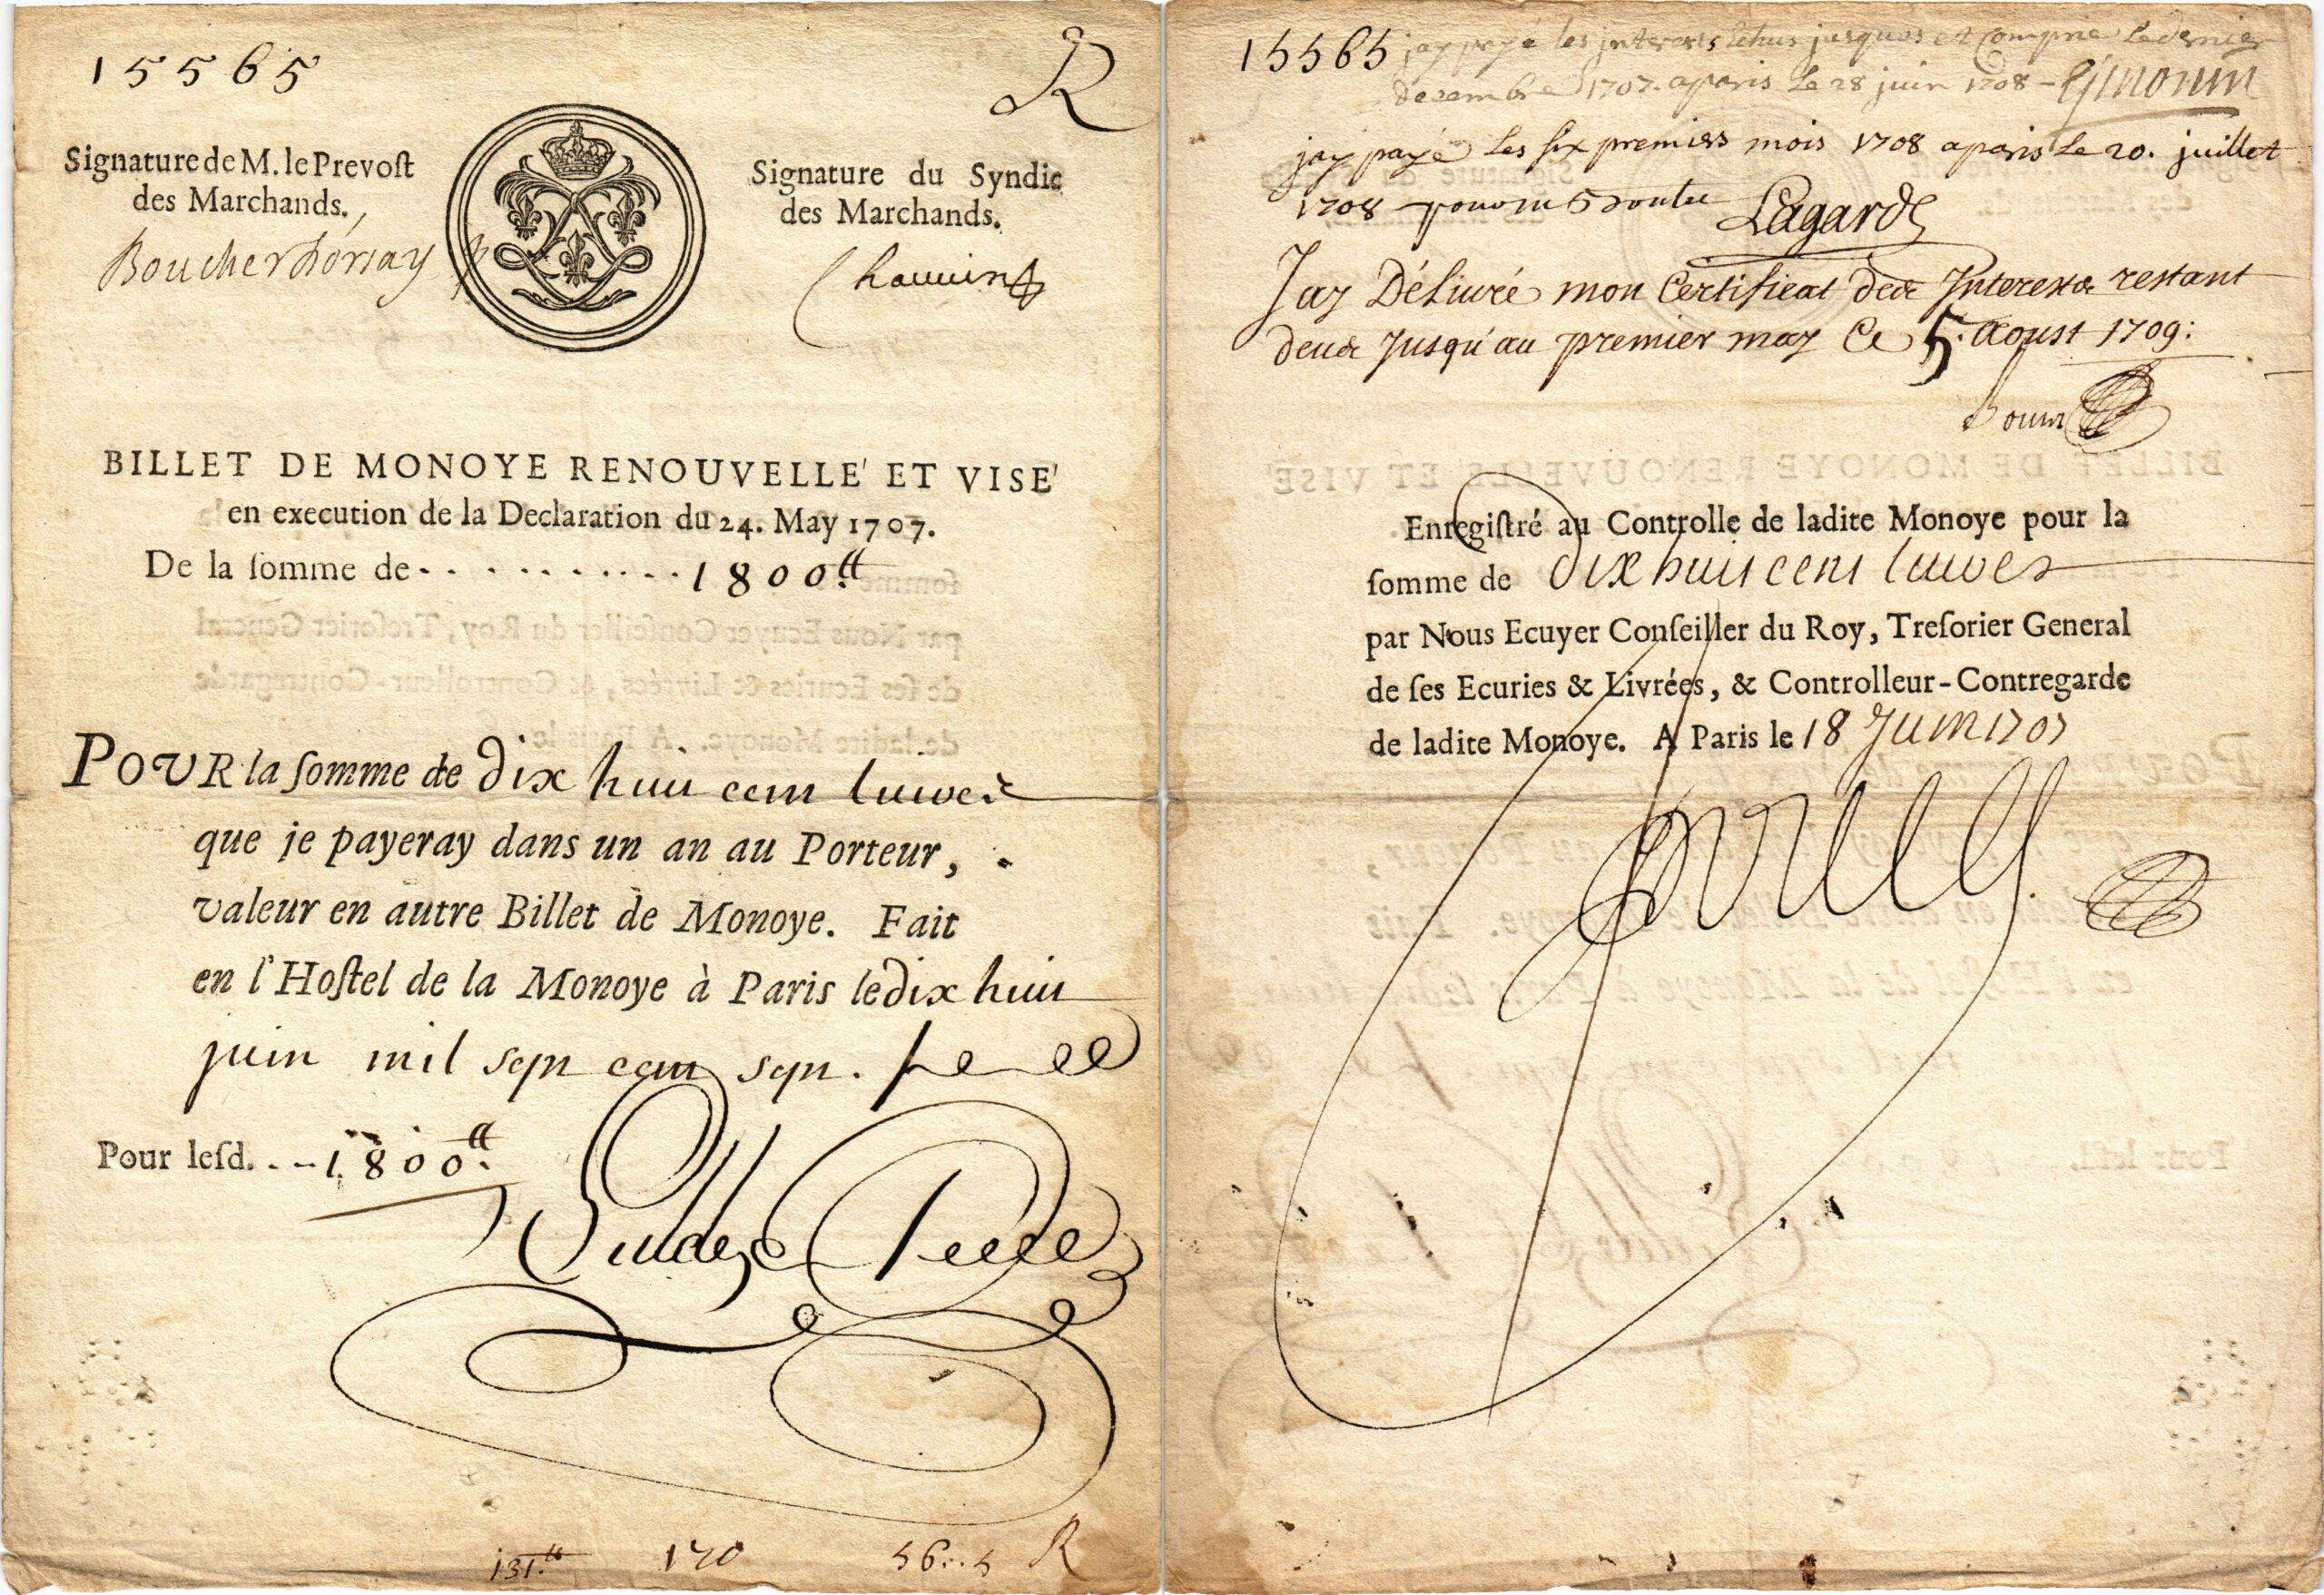 15565
R
Signature de M. le Prevoſt
des Marchands.
Boucher Dorsay
Signature du Syndic
des Marchands.
Chauuin
BILLET DE MONOYE RENOUVELLE' ET VISE'
en execution de la Declaration du 24. May 1707.
De la ſomme de . . . . . . . . . . . 1800tt
POVR la ſomme de dix huit cent liures
que je payeray dans un an au Porteur, .
valeur en autre Billet de Monoye. Fait
en l'Hoſtel de la Monoye à Paris le dix huit
juin mil sept cent sept.
Pour leſd. . . - 1800tt.
131.tt 170 56..5 R
15565 jay payé les jnterests Echus jusques et Compris Le dernier
decembre 1707. aparis Le 28 juin 1708 -
jay payé Les six premiers mois 1708 aparis Le 20. juillet
1708 Lagarde
Jay Déliuré mon Certificat des Jnterests restant
deus Jusqu'au premier may Ce 5. Aoust 1709:
Enregiſtré au Controlle de ladite Monoye pour la
ſomme de dix huit cent liures
par Nous Ecuyer Conſeiller du Roy, Treſorier General
de ſes Ecuries & Livrées, & Controlleur-Contregarde
de ladite Monoye. A Paris le 18 Juin 1707